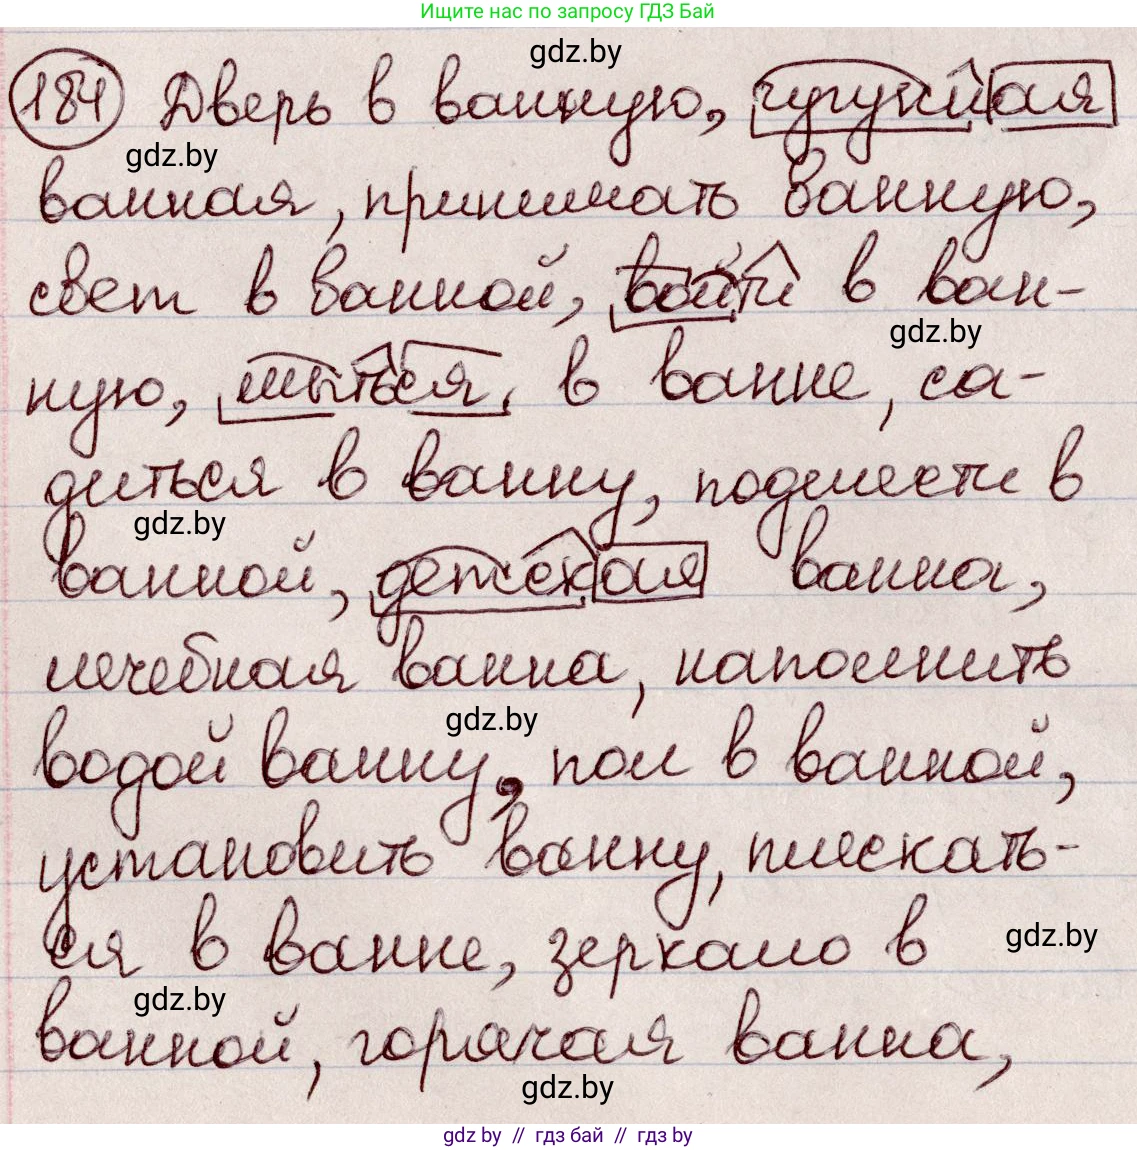 Ищите нас по запросу ГДЗ Бай
gdz.by
184 Дверь в ванную, чугунная
gdz.by
ванная, принимать ванную,
свет в ванной, войти в ван-
gdz.by
ную, мыться, в ванне, са-
диться в ванну, подмести в
gdz.by
ванной, детская ванна,
лечебная ванна, наполнить
gdz.by
водой ванну, пол в ванной,
установить ванну, плескать-
ся в ванне, зеркало в
gdz.by
gdz.by
ванной, горячая ванна,
gdz.by
gdz by // гдз бай // гдз by